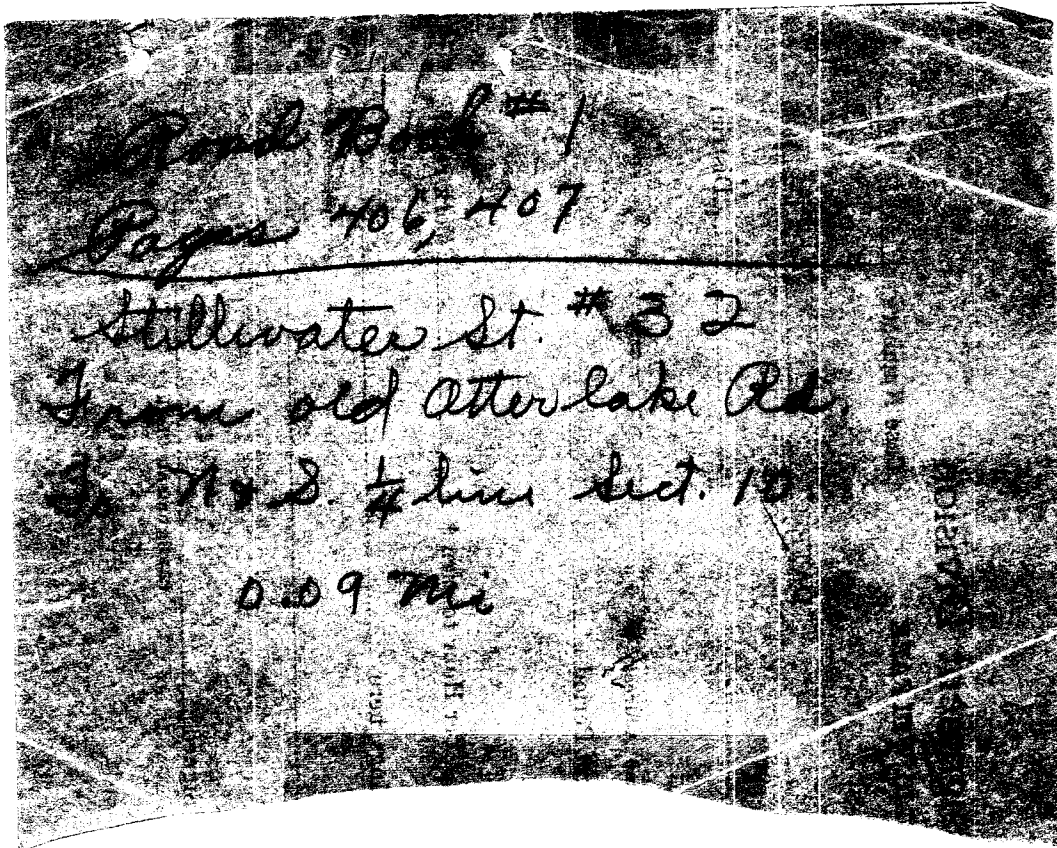 Road Book #1
Pages 406, 407
Stillwater St. #32
From old Otter lake Rd.
To N & S. 1/4 line Sect. 10.
0.09 Mi